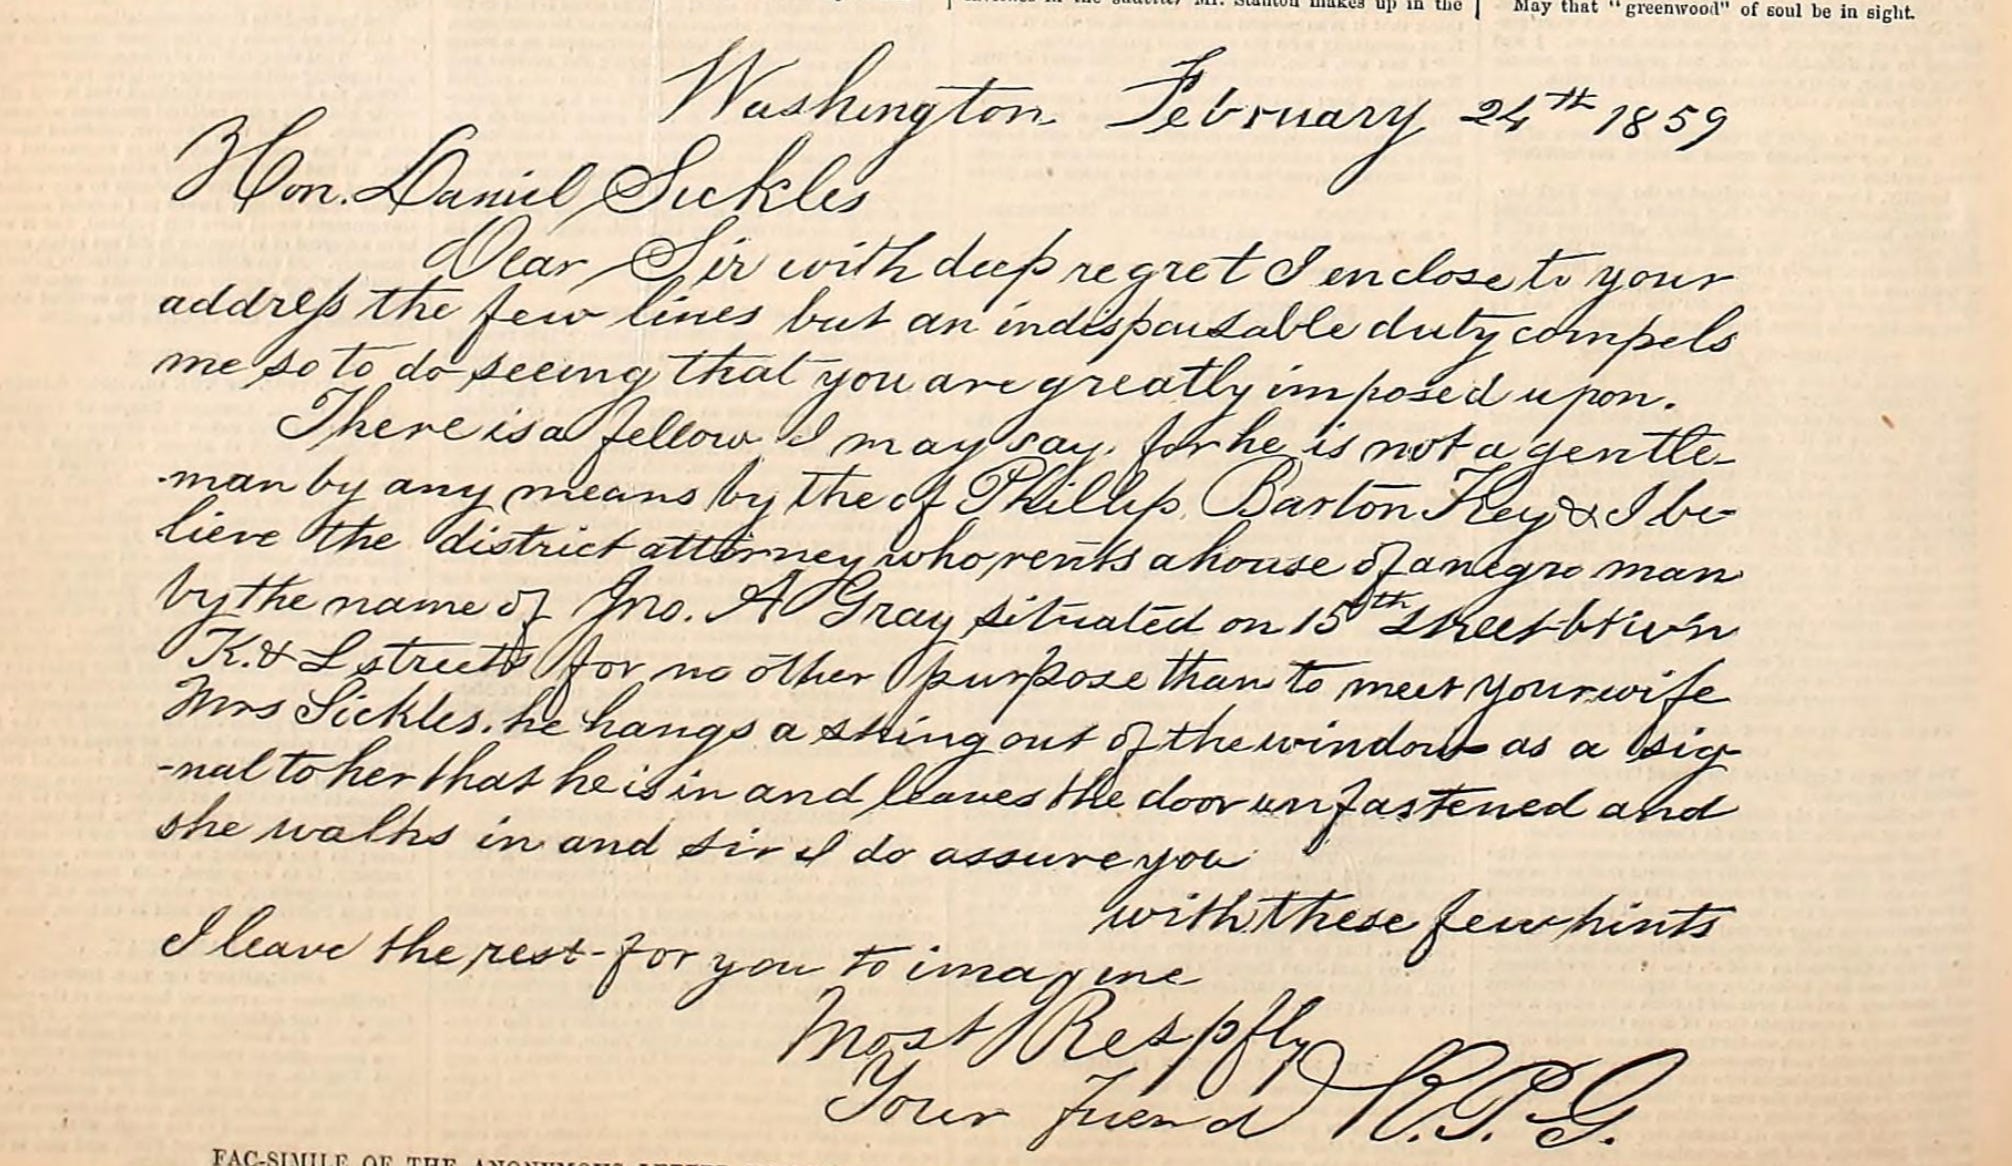 Mr. Stanton makes up in the
May that "greenwood" of soul be in sight.
Washington February 24th 1859
Hon. Daniel Sickles
Dear Sir with deep regret I enclose to your
address the few lines but an indispensable duty compels
me so to do seeing that you are greatly imposed upon.
There is a fellow I may say, for he is not a gentle-
-man by any means by the of Phillip Barton Key & I be-
lieve the district attorney who rents a house of a negro man
by the name of Jno. A Gray situated on 15th street btwn
K. & L streets for no other purpose than to meet your wife
Mrs Sickles. he hangs a string out of the window as a sig-
-nal to her that he is in and leaves the door unfastened and
she walks in and sir I do assure you
with these few hints
I leave the rest for you to imagine
Most Respfly
Your friend R.P.G.
FAC-SIMILE OF THE ANONYMOUS